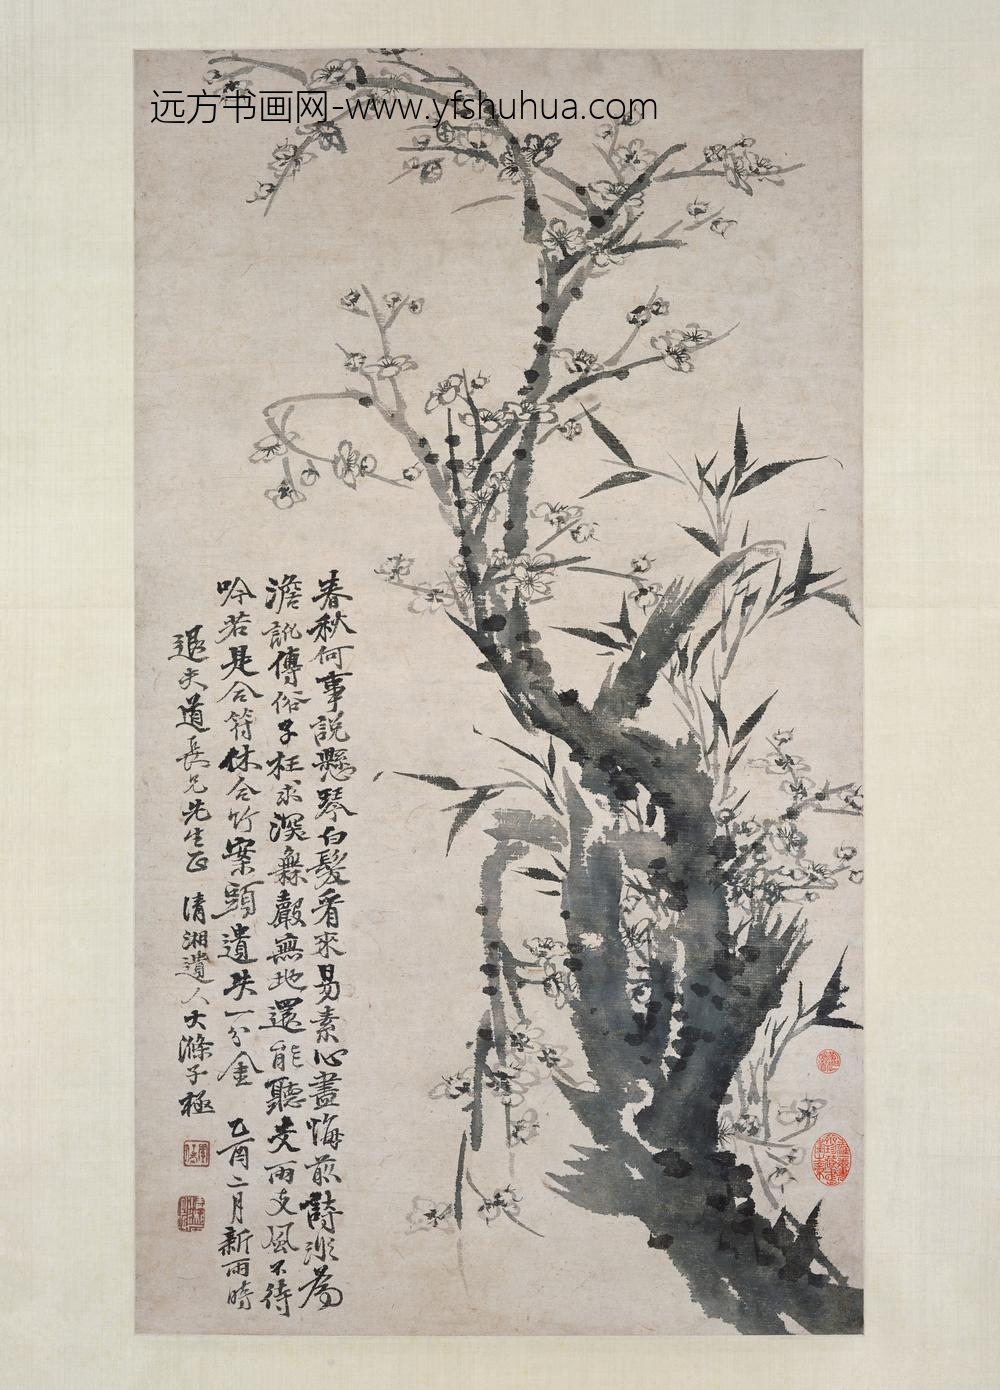 远方书画网-www.yfshuhua.com
春秋何事說懸琴白髮看來易素心盡悔前詩非為
澹訛傳俗子枉求深無聲無地還能聽支雨支風不待
吟若是合符休合竹案頭遺失一分金 乙酉二月新雨時
退夫道長兄先生正 清湘遺人大滌子極